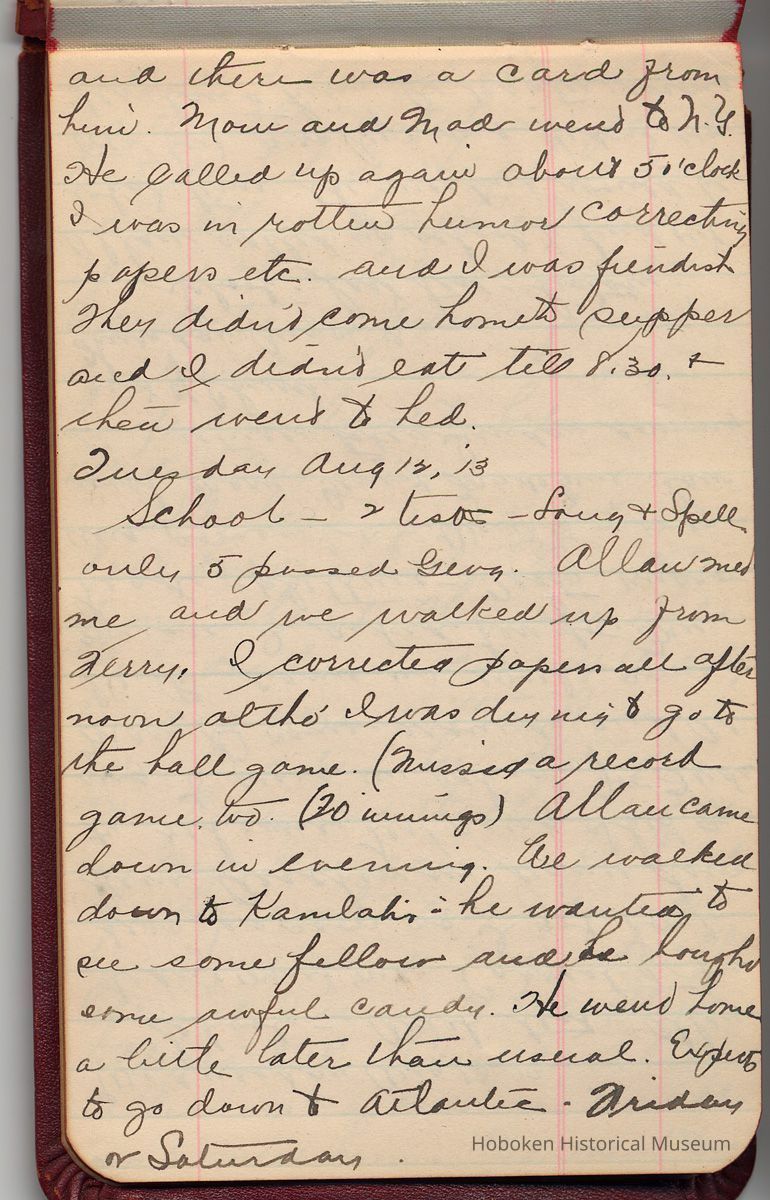 and there was a card from
him. Mom and Mad went to N.Y.
He called up again about 5 o'clock
I was in rotten humor correcting
papers etc. and I was fiendish
They didn't come home to supper
and I didn't eat till 8.30. +
then went to bed.
Tuesday Aug 12, 13
School - 2 tests - & Spell
only 5 passed Geog. Allan met
me and we walked up from
Ferry, I corrected papers all after
noon altho' I was dying to go to
the ball game. (Missed a record
game too. (20 innings) Allan came
down in evening. We walked
down to - he wanted to
see some fellow and he bought
some awful candy. He went home
a little later than usual. Expects
to go down to Atlantic - Friday
or Saturday.
Hoboken Historical Museum